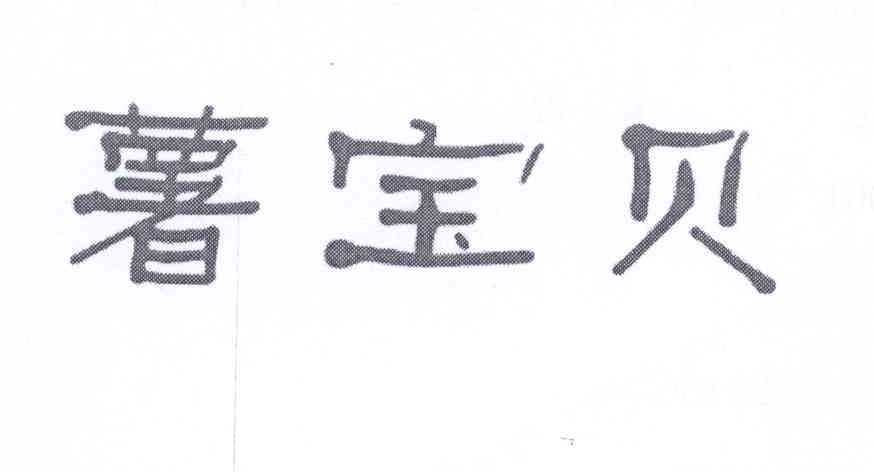 薯宝贝